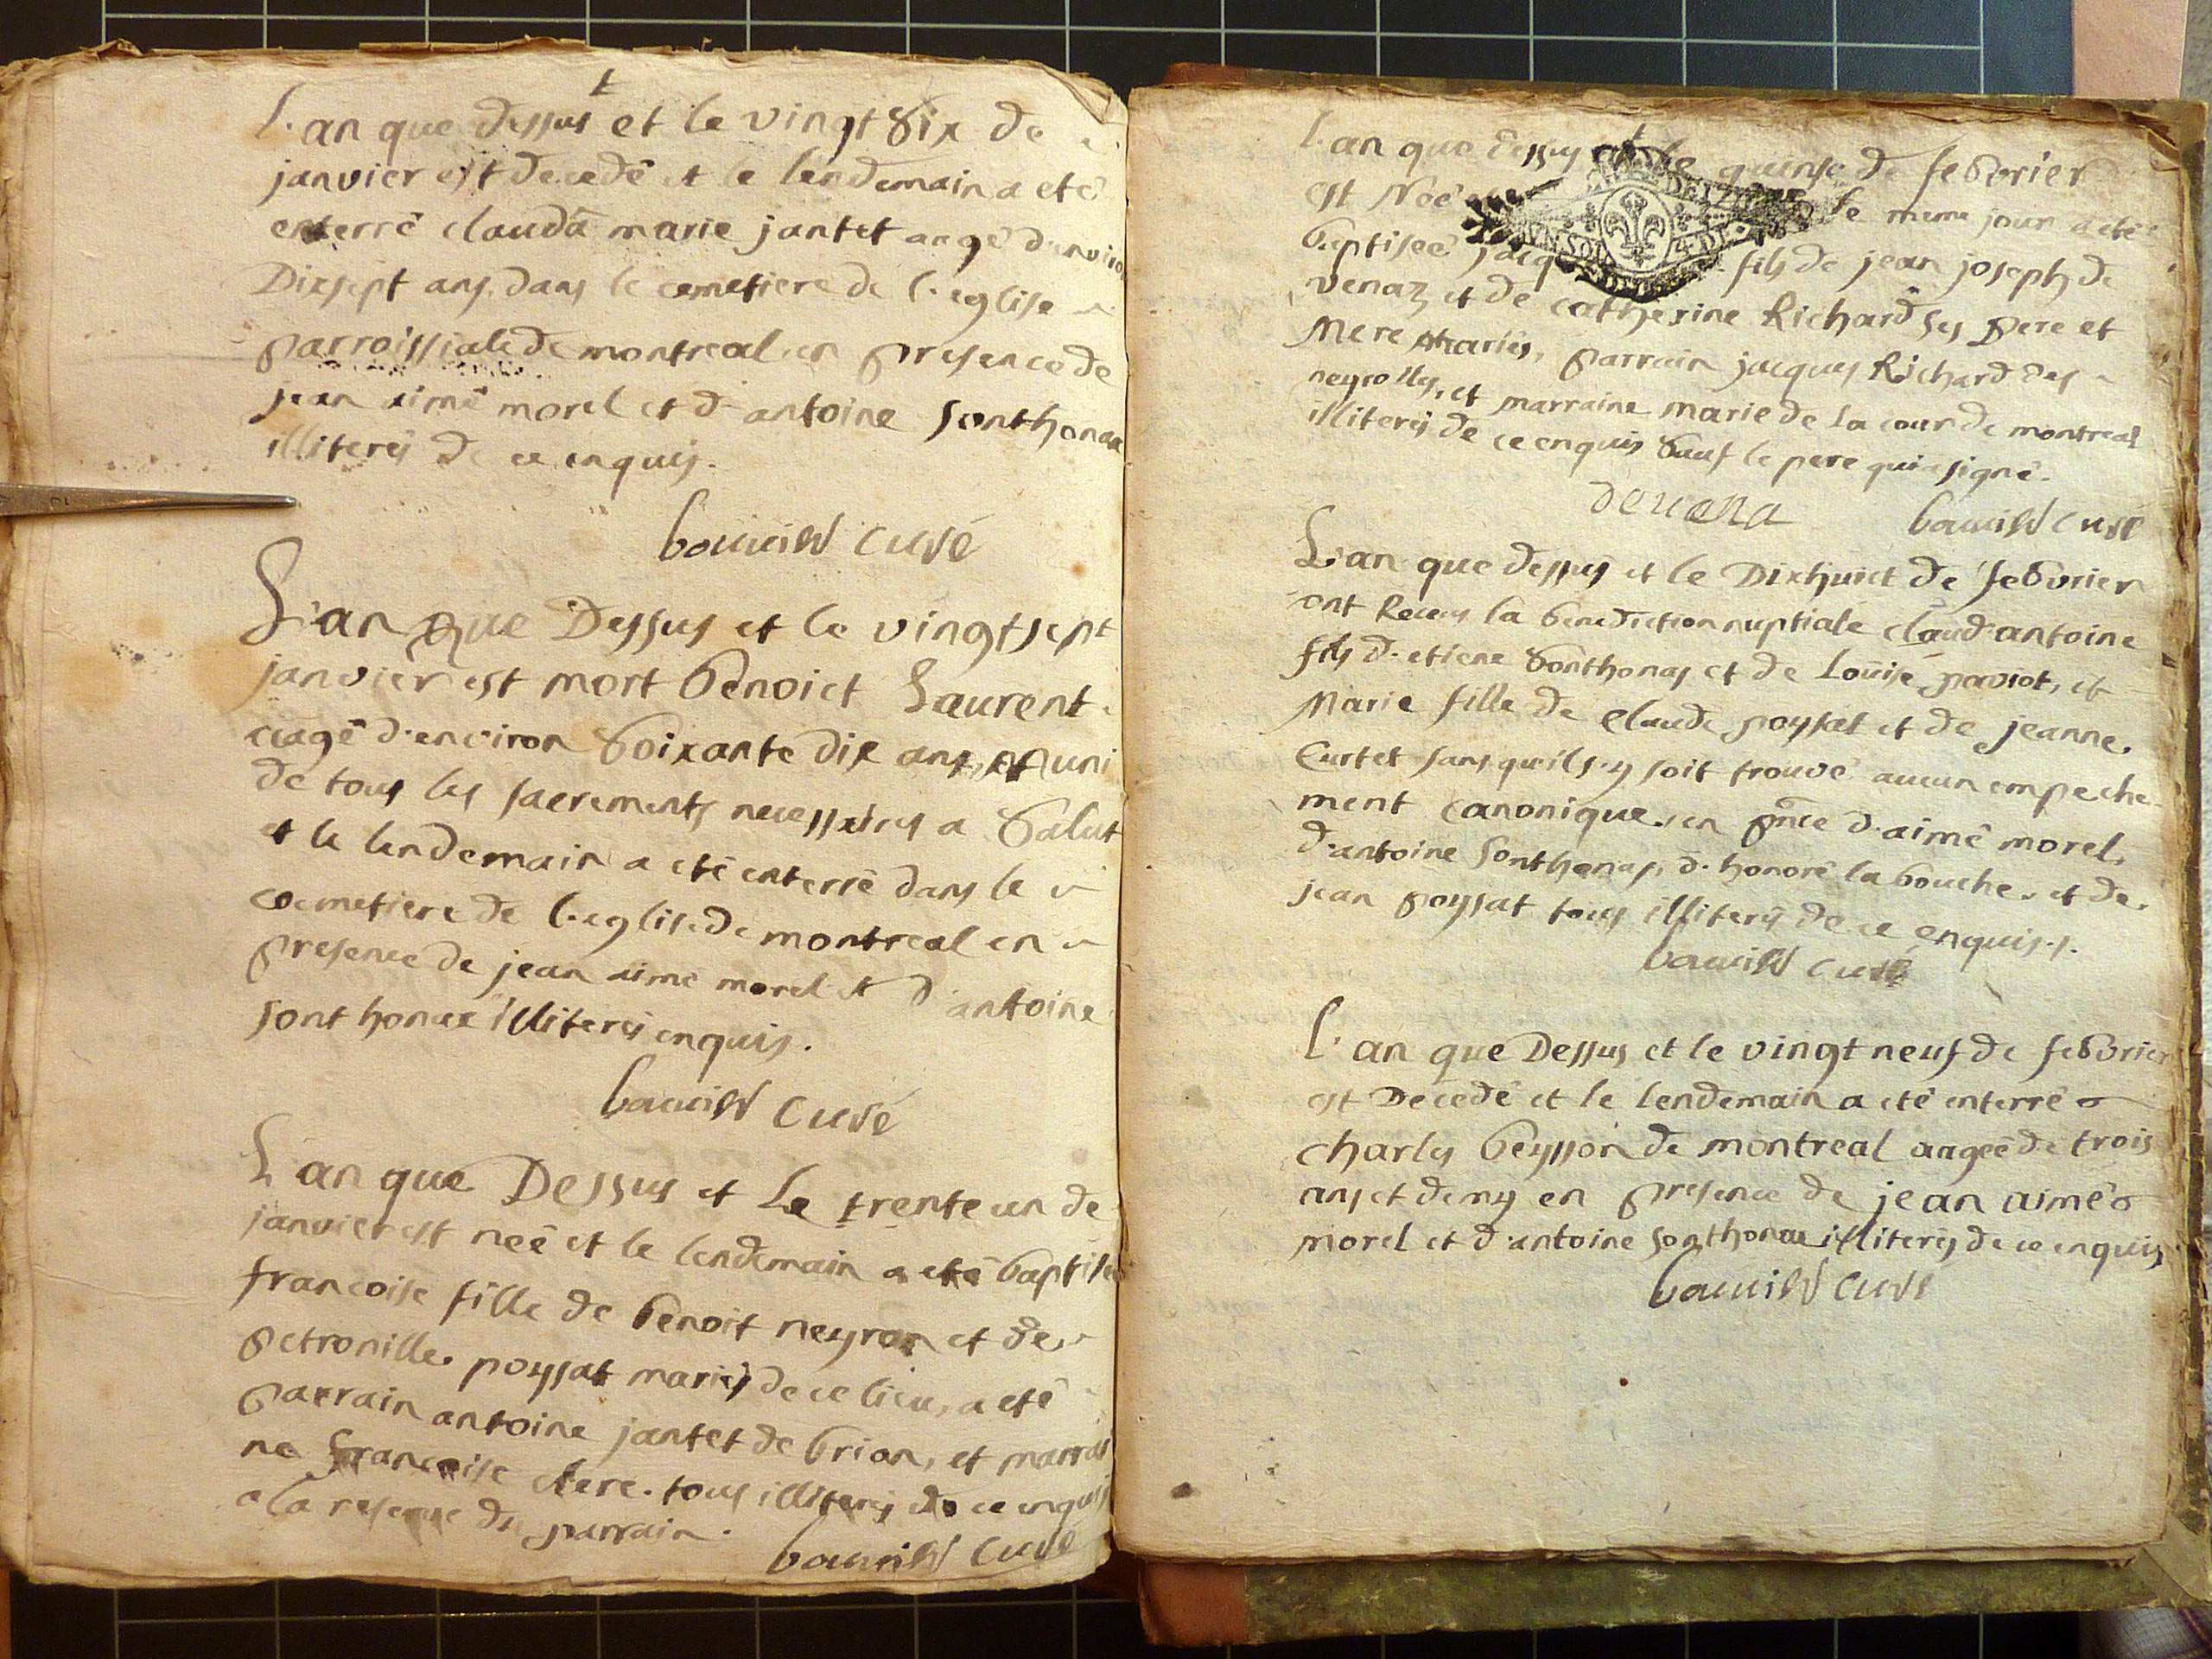 L'an que dessus et le vingt six de
janvier est decedé et le lendemain a eté
enterré clauda marie jantet aagé d'enviro
Dixsept ans, dans le cemetiere de l'eglise
parroissiale de montreal en presence de
jean aimé morel et d'antoine sonthonax
illiterés de ce enquis.
curé
L'an que Dessus et le vingtsept
janvier est mort benoict Laurent
aagé d'environ soixante dix ans, muni
de tous les sacrements necessaires a salut
et le lendemain a eté enterré dans le
coemetiere de l'eglise de montreal en
presence de jean aimé morel et d'antoine
sonthonax illiterés enquis.
curé
L'an que Dessus et Le trente un de
janvier est neé et le lendemain a eté baptisé
francoise fille de benoit neyron et de
petronille poysat mariés de ce lieu, a eté
parrain antoine jantet de brion, et marrai
ne francoise clere. tous illiterés de ce enquis
a la reserve du parrain.
curé
L'an que dessus et le quinse de febvrier
est Noé le même jour a eté
baptiseé jacq fils de jean joseph de
venaz et de catherine Richard ses pere et
Mere mariés, parrain jacques Richard des
neyrolles, et marraine marie de la cour de montreal
illiterés de ce enquis sauf le pere qui a signé.
devena curé
L'an que dessus et le Dixhuict de febvrier
ont Receus la benediction nuptiale claud antoine
fils d'etiene sonthonas et de Louise paviot, et
Marie fille de claude poysat et de jeanne
Curtet sans qu'ils y soit trouvé aucun empeche
ment canonique, en pnce d'aimé morel,
d'antoine sonthonas, d'honoré la bouche, et de
jean poysat tous illiterés de ce enquis.
curé
L'an que Dessus et le vingt neuf de febvrier
est Decedé et le lendemain a eté enterré
charles beysson de montreal aageé de trois
ans et demy en presence de jean aimé
morel et d'antoine sonthonax illiterés de ce enquis
curé